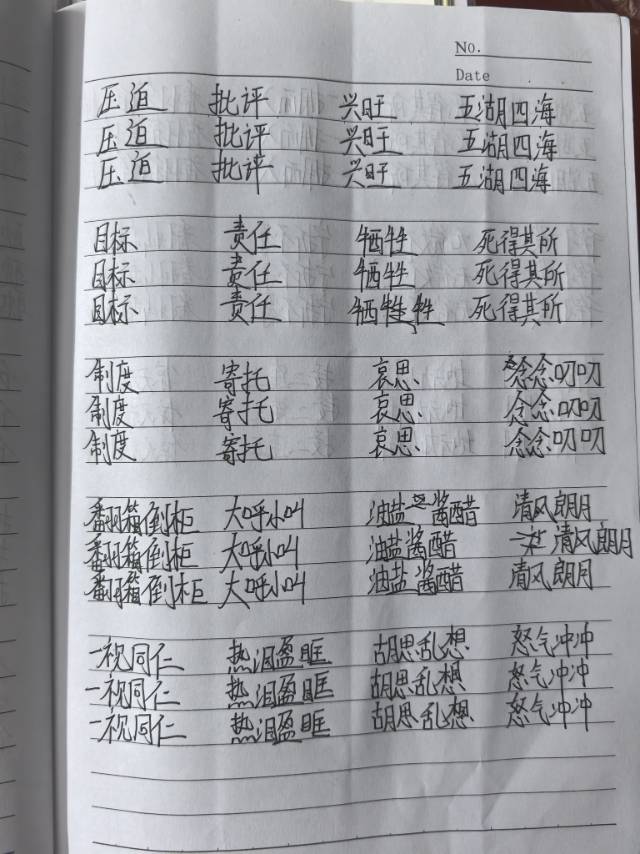 No.
Date
压迫 批评 兴旺 五湖四海
压迫 批评 兴旺 五湖四海
压迫 批评 兴旺 五湖四海
目标 责任 牺牲 死得其所
目标 责任 牺牲 死得其所
目标 责任 牺牲牲 死得其所
制度 寄托 哀思 念念叨叨
制度 寄托 哀思 念念叨叨
制度 寄托 哀思 念念叨叨
翻箱倒柜 大呼小叫 油盐酱醋 清风朗月
翻箱倒柜 大呼小叫 油盐酱醋 清风朗月
翻箱倒柜 大呼小叫 油盐酱醋 清风朗月
一视同仁 热泪盈眶 胡思乱想 怒气冲冲
一视同仁 热泪盈眶 胡思乱想 怒气冲冲
一视同仁 热泪盈眶 胡思乱想 怒气冲冲